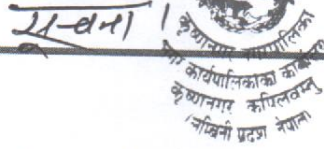 सूचना ।
कृष्णनगर नगरपालिका
नगर कार्यपालिकाको कार्यालय
कृष्णनगर कपिलवस्तु
लुम्बिनी प्रदेश नेपाल